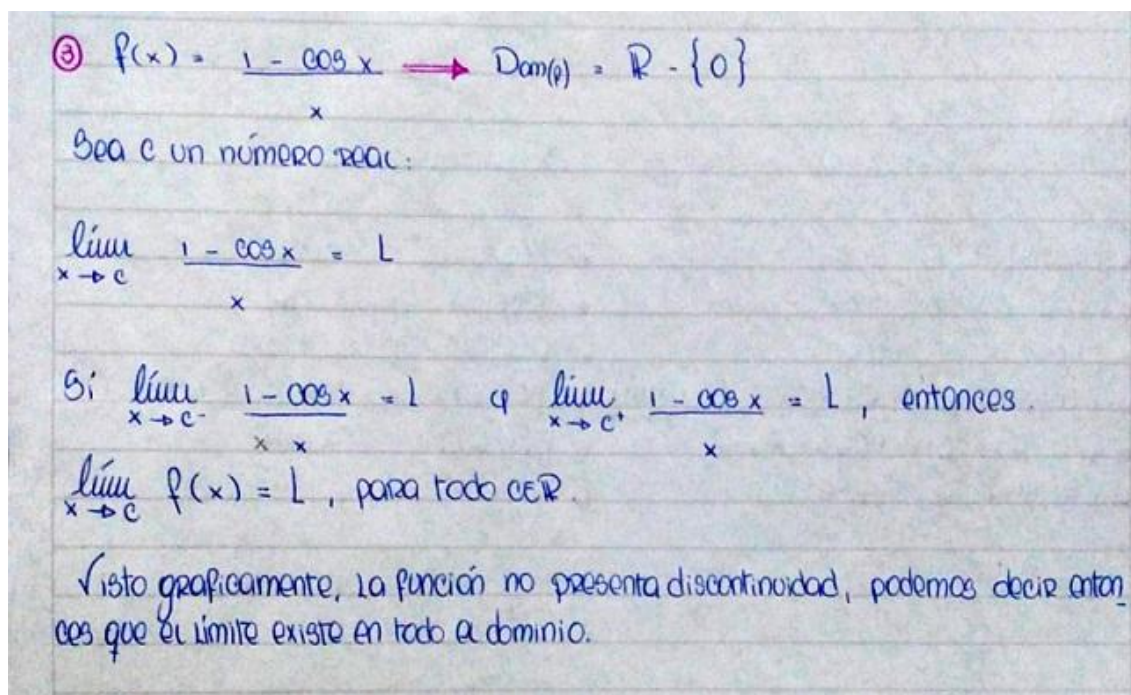 ③ f(x) = (1 - cos x)/x → Dom(f) = R - {0}
Sea c un número real:
lím x→c (1 - cos x)/x = L
Si lím x→c⁻ (1 - cos x)/x = L y lím x→c⁺ (1 - cos x)/x = L, entonces
lím x→c f(x) = L, para todo c∈R.
Visto graficamente, la función no presenta discontinuidad, podemos decir enton
ces que el límite existe en todo el dominio.